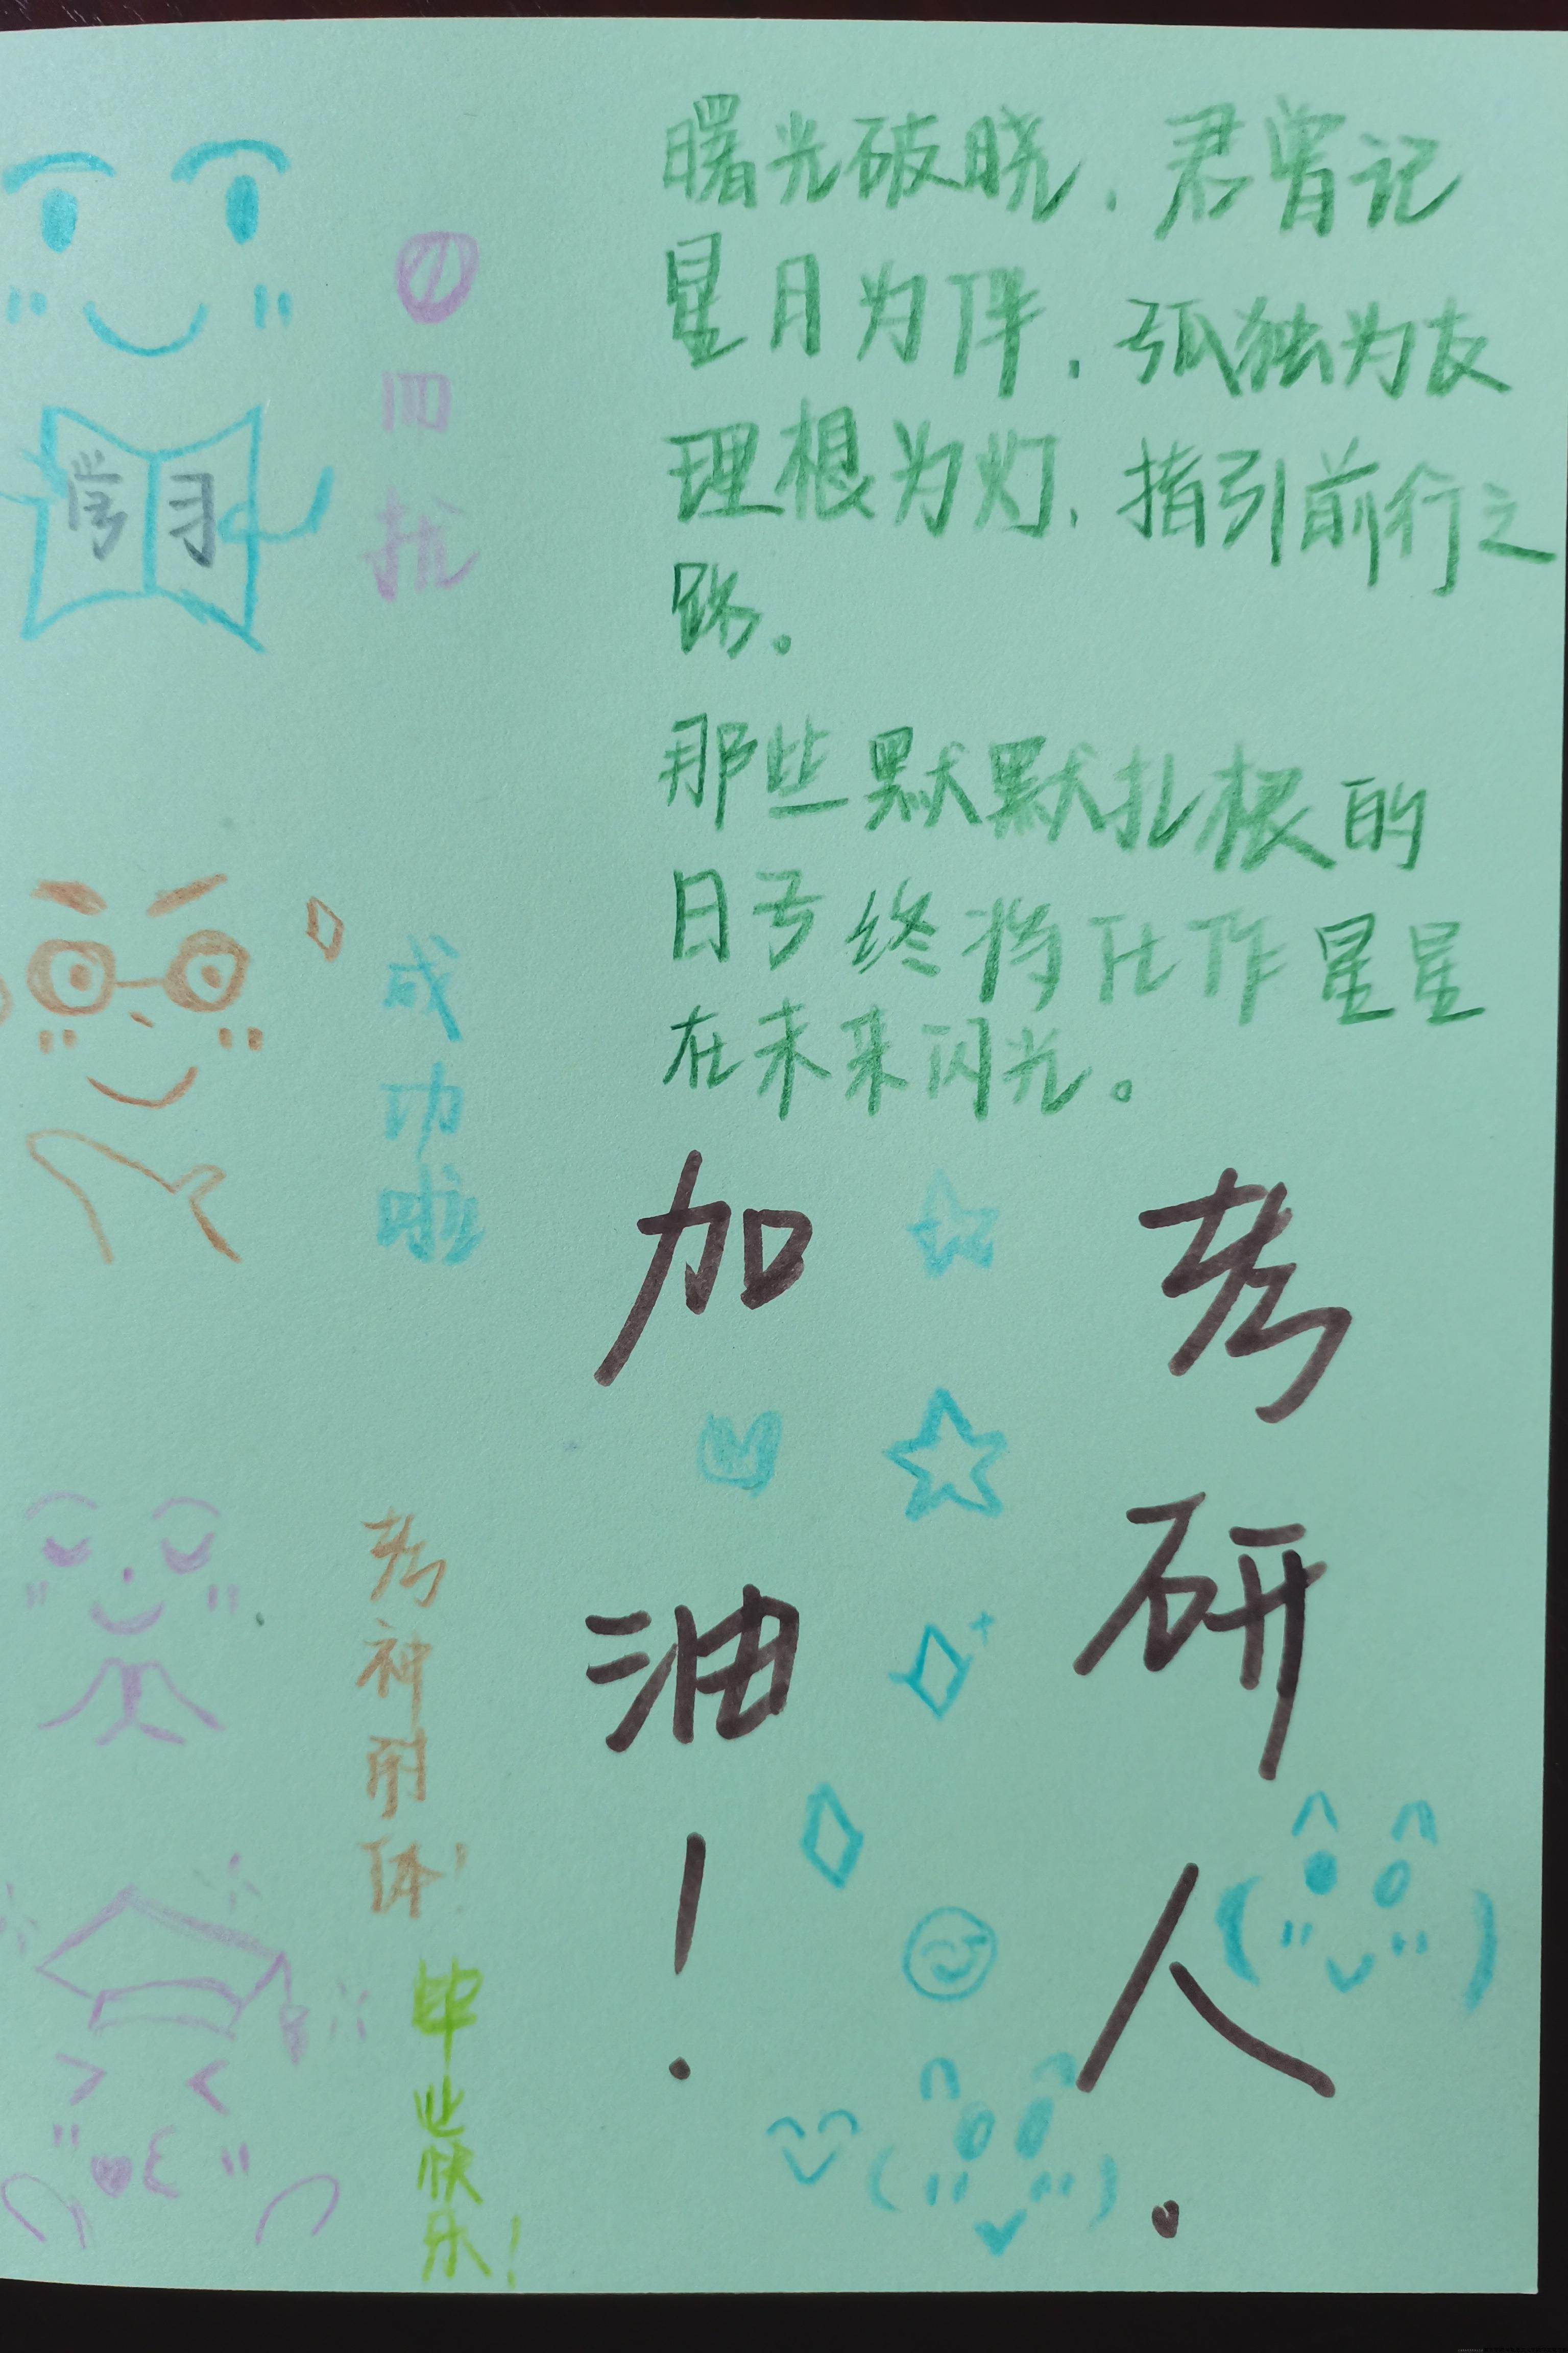 曙光破晓，君曾记
星月为伴，孤独为友
理根为灯，指引前行之
路。
那些默默扎根的
日号终将化作星星
在未来闪光。
考研人
加油！
学习
勿扰
成功啦
考神附体！
毕业快乐！